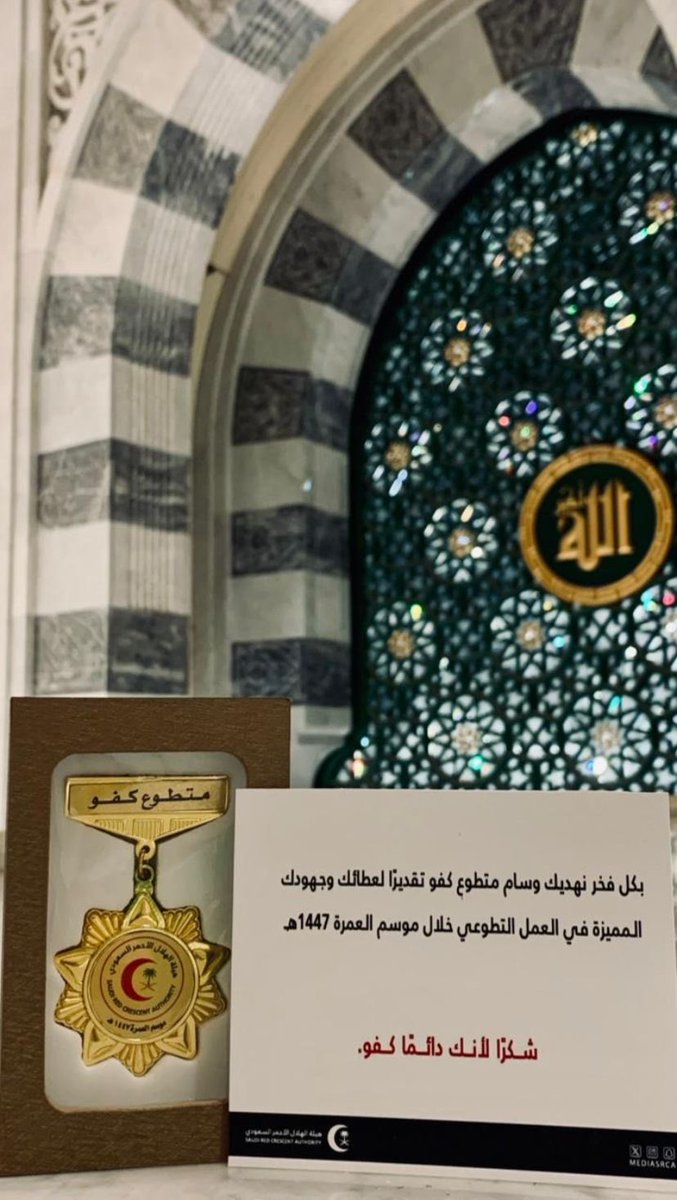 الله
متطوع كفو
هيئة الهلال الأحمر السعودي
SAUDI RED CRESCENT AUTHORITY
موسم العمرة ١٤٤٧هـ
بكل فخر نهديك وسام متطوع كفو تقديرًا لعطائك وجهودك
المميزة في العمل التطوعي خلال موسم العمرة 1447هـ
شكرًا لأنك دائمًا كفو.
هيئة الهلال الأحمر السعودي
SAUDI RED CRESCENT AUTHORITY
MEDIASRCA